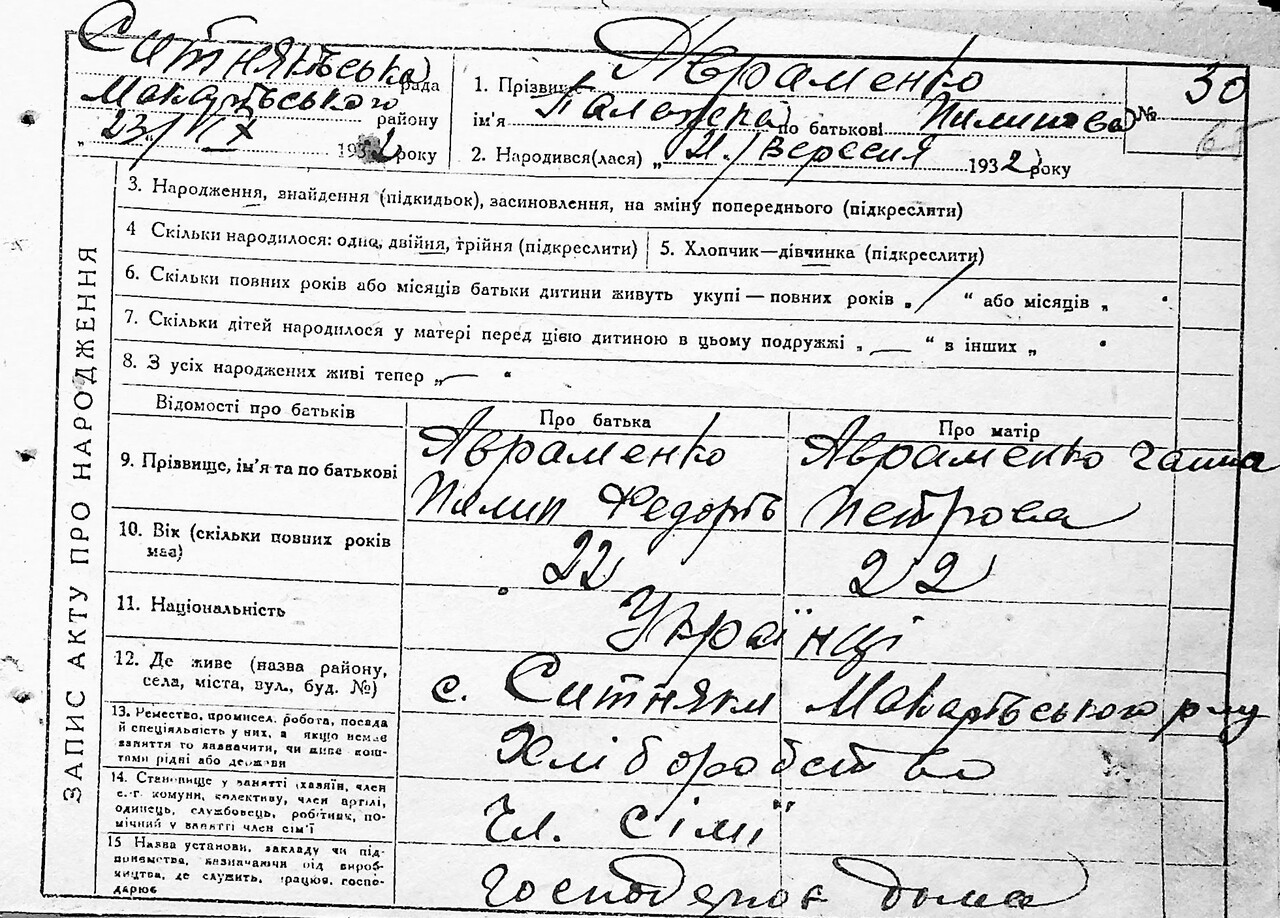 Ситняківська рада
Макарівського району
„ 23/IX 1932 року
1. Прізвище Авраменко
ім'я Палажка по батькові Пилипова
2. Народився(лася) „ 21 / Вересня 1932 року
№ 30
65
ЗАПИС АКТУ ПРО НАРОДЖЕННЯ
3. Народження, знайдення (підкидьок), засиновлення, на зміну попереднього (підкреслити)
4 Скільки народилося: одна, двійня, трійня (підкреслити)
5. Хлопчик—дівчинка (підкреслити)
6. Скільки повних років або місяців батьки дитини живуть укупі — повних років „ / “ або місяців „ “
7. Скільки дітей народилося у матері перед цією дитиною в цьому подружжі „ — “ в інших „ “
8. З усіх народжених живі тепер „ — “
Відомості про батьків
Про батька
Про матір
9. Прізвище, ім'я та по батькові
Авраменко
Пилип Федорів
Авраменко Ганна
Петрова
10. Вік (скільки повних років
має)
22
22
11. Національність
Українці
12. Де живе (назва району,
села, міста, вул., буд. №)
с. Ситняки Макарівського р-ну
13. Ремество, промисел, робота, посада
й спеціяльність у них, а якщо немає
заняття то зазначити, чи живе кош-
тами рідні або держави
Хліборобство
14. Становище у занятті (хазяїн, член
с.-г. комуни, колективу, член артілі,
одинець, службовець, робітник, по-
мічний у занятті член сім'ї
Чл. сімї
15 Назва установи, закладу чи під-
приємства, визначаючи рід вироб-
ництва, де служить, працює, госпо-
дарює
дома